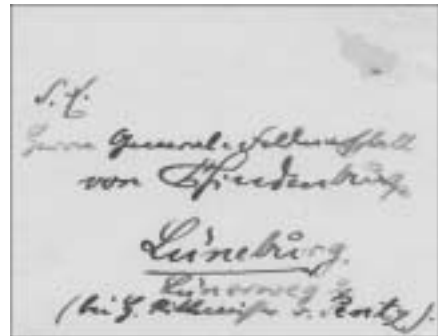 S. E.
Herrn General-Feldmarschall
von Hindenburg
Lüneburg.
Lünerweg
(bei H. Rittmeister v.